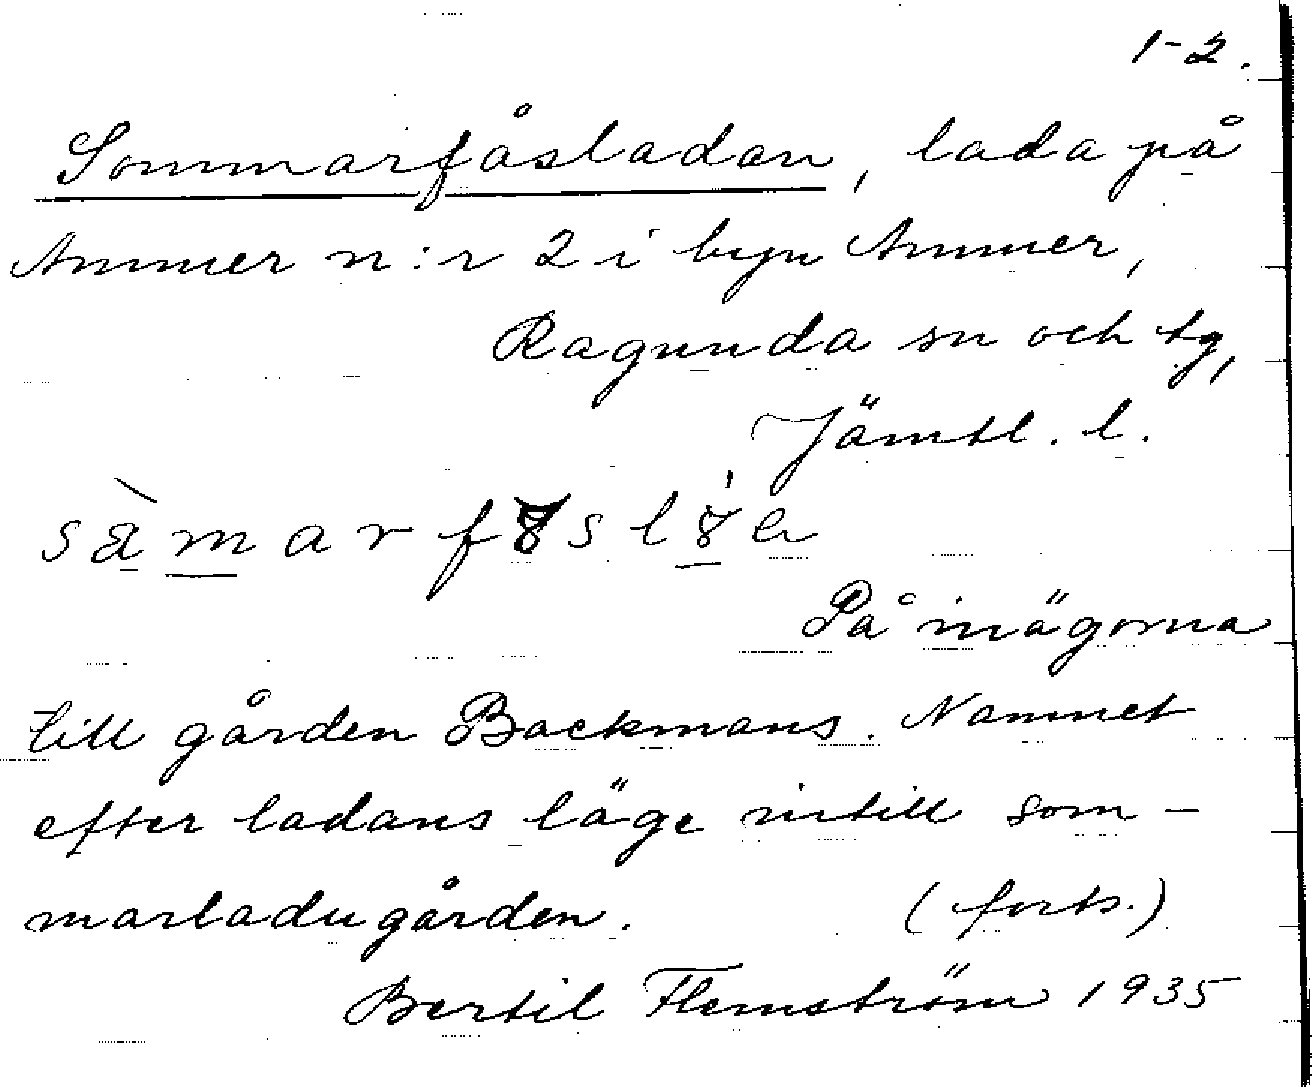 1-2.
Sommarfåsladan, lada på
Ammer n:r 2 i byn Ammer,
Ragunda sn och tg,
Jämtl. l.
På inägorna
till gården Backmans. Namnet
efter ladans läge intill som-
marladugården. (forts.)
Bertil Flemström 1935